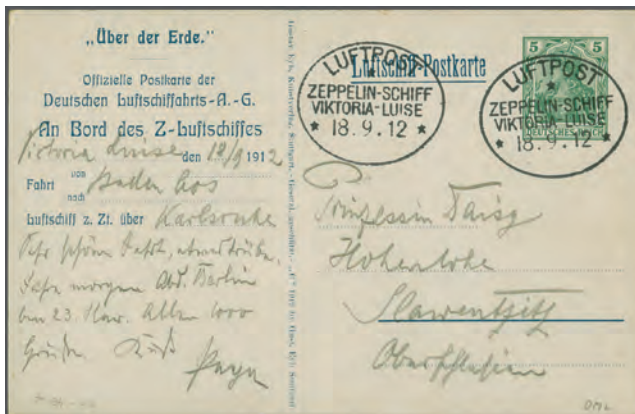 „Über der Erde."
Offizielle Postkarte der
Deutschen Luftschiffahrts-A.-G.
An Bord des Z-Luftschiffes
Victoria Luise den 18/9 1912
Fahrt von Baden Oos
nach
Luftschiff z. Zt. über Karlsruhe
Sehr schöne Fahrt, etwas trübe.
morgen Abd. Berlin
23. Alles 1000
Grüße. Kuß
Papa
Luftschiff-Postkarte
LUFTPOST
ZEPPELIN-SCHIFF
VIKTORIA-LUISE
* 18.9.12 *
5 5
DEUTSCHES REICH
LUFTPOST
ZEPPELIN-SCHIFF
VIKTORIA-LUISE
* 18.9.12 *
Prinzessin Daisy
Hohenlohe
Slawentzitz
Oberschlesien